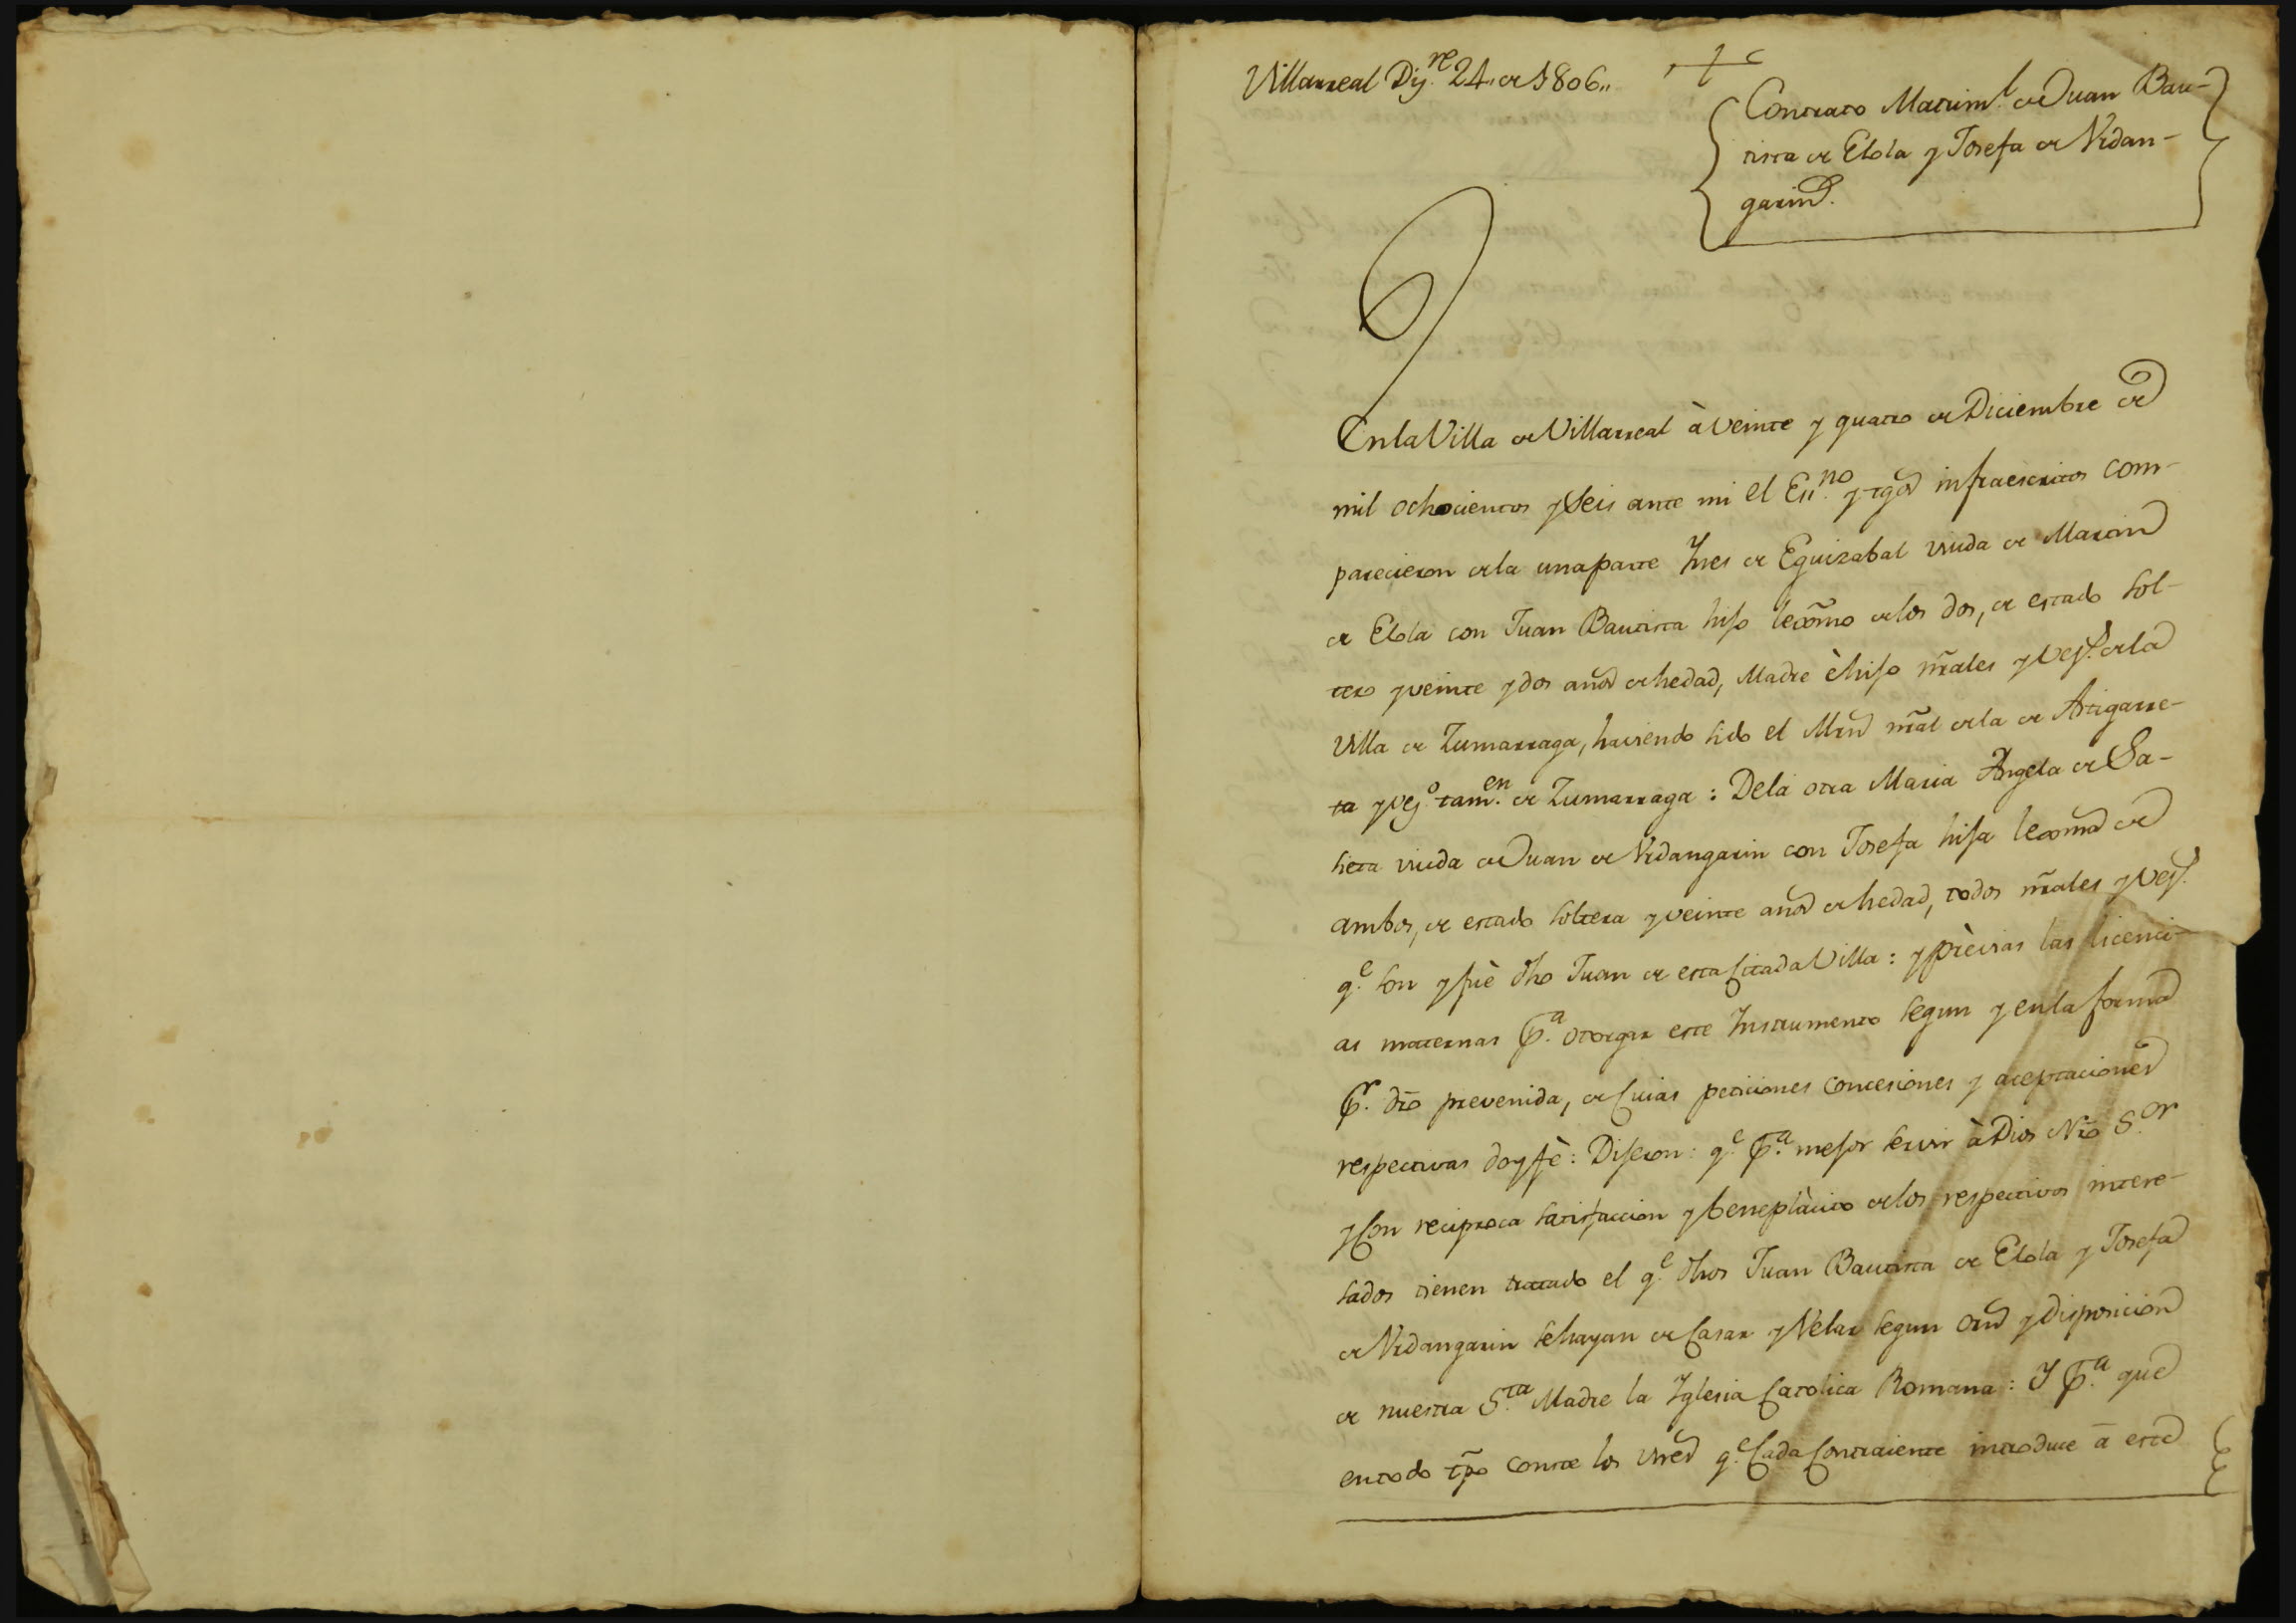 Villarreal Diz.re 24 de 1806,,
Contrato Matrim.l de Juan Bau-
tista de Elola y Josefa de Vrdan-
garin.
En la Villa de Villarreal à veinte y quatro de Diciembre de
mil ochocientos y seis ante mi el Ess.no y tgos infraescritos com-
parecieron de la una parte Ines de Eguizabal viuda de Martin
de Elola con Juan Bautista hijo lexmo de los dos, de estado sol-
tero y veinte y dos años de hedad, Madre è hijo nrales y vez.s de la
Villa de Zumarraga, haviendo sido el Mrn nral de la de Astigarre-
ta y vez.o tam.en de Zumarraga: De la otra Maria Angela de Sa-
sieta viuda de Juan de Vrdangarin con Josefa hija lexma de
ambos, de estado soltera y veinte años de hedad, todos nrales y vez.s
q.e son y fuè dho Juan de esta citada Villa: y prèvias las licenci-
as maternas p.a otorgar este Instrumento segun y en la forma
p.r dro prevenida, de cuias peticiones concesiones y aceptaciones
respectivas doy fè: Dijeron: q.e p.a mejor servir à Dios Nro S.or
y con reciproca satisfaccion y beneplàcito de los respectivos intere-
sados tienen tratado el q.e dhos Juan Bautista de Elola y Josefa
de Vrdangarin se hayan de casar y Velar segun orn y disposicion
de nuestra S.ta Madre la Yglesia Catolica Romana: Y p.a que
en todo tpo conste los vnes q.e cada contraiente introduce à este